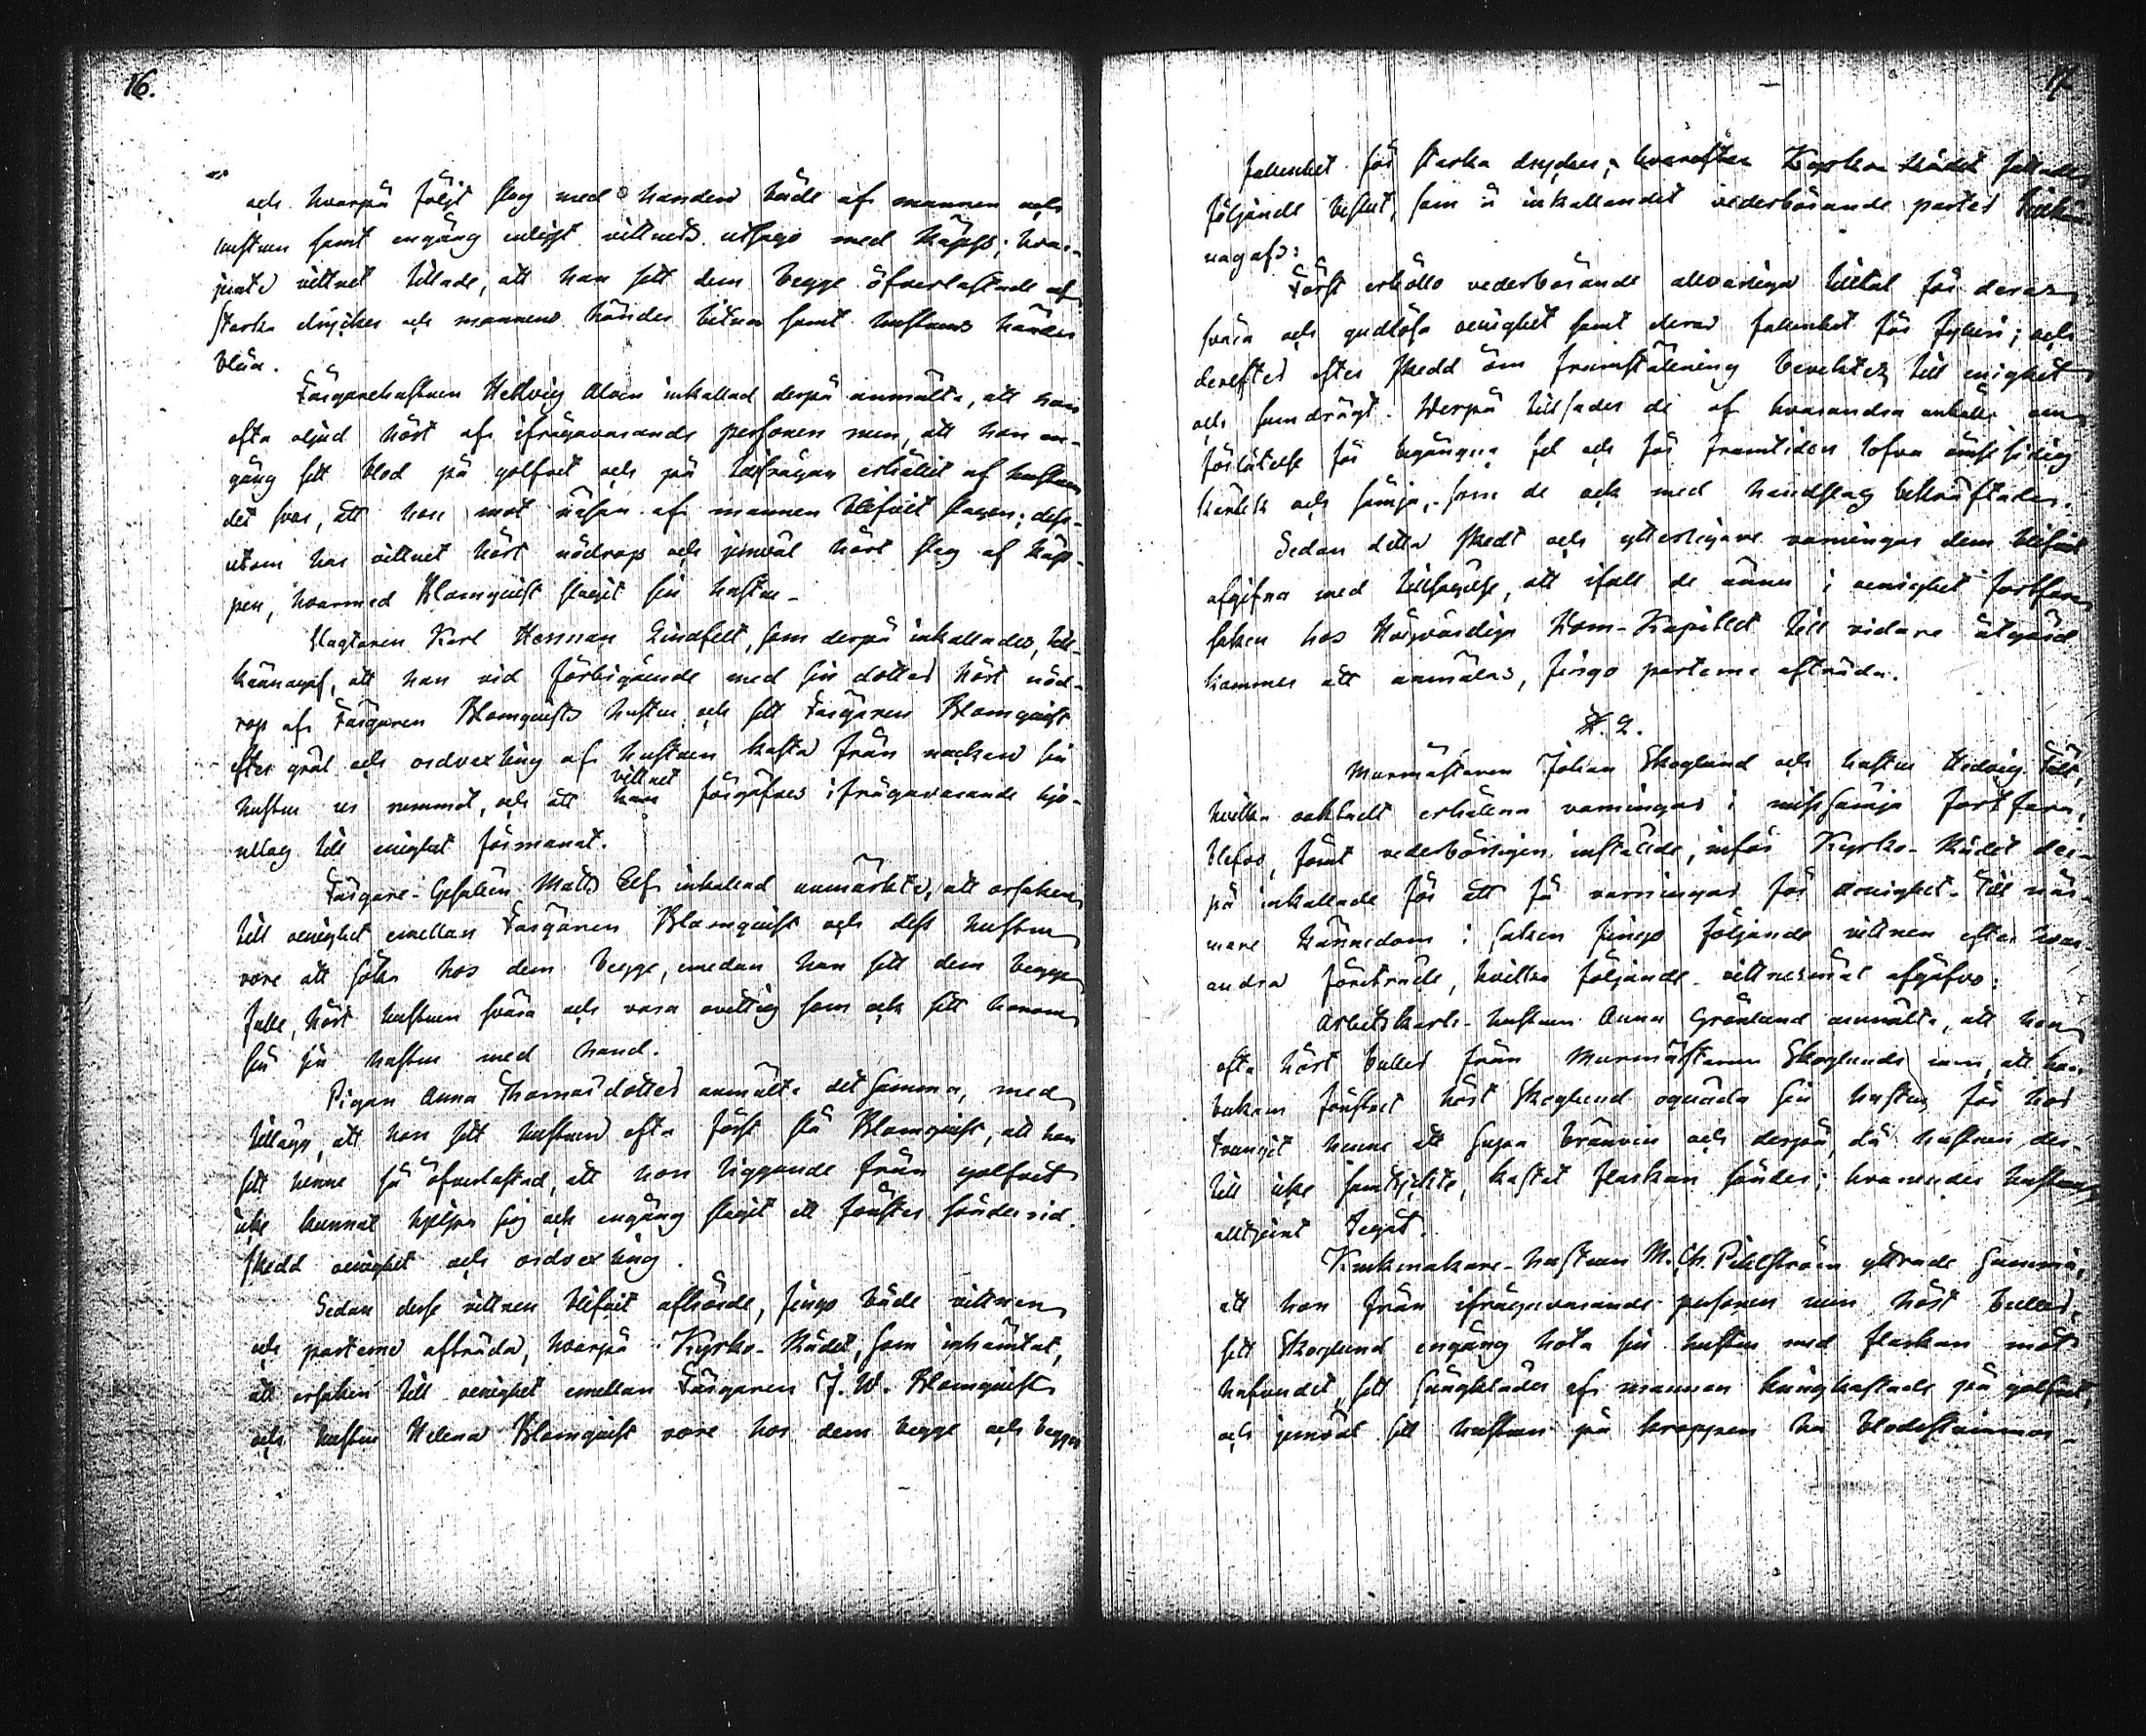 16.
och hvarpå följt slag med handen både af mannen och
hustrun samt engång enligt vittnets utsago med käpp; hvar-
jemte vittnet tillade, att han sett dem begge öfverlastade af
starka drycker och mannens händer bitna samt hustruns händer
blåa.
Färgarehustrun Hedvig Alvin inkallad derpå anmälte, att hon
ofta oljud hört af ifrågavarande personen rum, att hon en-
gång sett blod på golfvet och på tillfrågan erhållit af hustrun
det svar, att hon mot näsan af mannen blifvit slagen; dess-
utom har vittnet hört nödrop och jemväl hört slag af käp-
pen, hvarmed Blomquist slagit sin hustru.
Slagtaren Karl Herman Lindfelt, som derpå inkallades, till-
kännagaf, att han vid förbigående med sin dotter hört nöd-
rop af Färgaren Blomquists hustru och sett Färgaren Blomquist
efter gräl och ordvexling af hustrun kasta från nacken sin
hustru ur rummet, och att han vittnet förgäfves ifrågavarande hjo-
nelag till enighet förmanat.
Färgare-Gesällen Matts Elf inkallad anmärkte, att orsaken
till oenighet emellan Färgaren Blomquist och dess hustru
vore att söka hos dem begge, emedan han sett dem begge
fulle, hört hustrun svära och vara ovettig som ock sett honom
slå sin hustru med hand.
Pigan Anna Thomasdotter anmälte det samma, med
tillägg, att hon sett hustrun ofta först slå Blomquist, att hon
sett henne så öfverlastad, att hon liggande från golfvet
icke kunnat hjelpa sig och engång slagit ett fönster sönder vid
skedd oenighet och ordvexling.
Sedan desse vittnen blifvit afhörde, fingo både vittnen
och parterne afträda, hvarpå Kyrko-Rådet, som inhämtat,
att orsaken till oenighet emellan Färgaren J. W. Blomquist
och hustru Helena Blomquist vore hos dem begge och begges
17
fallenhet för starka drycker; hvarefter Kyrko-Rådet fattade
följande beslut, som å inkallandet vederbörande parter tillkän-
nagafs:
Först erhöllo vederbörande allvarliga tilltal för deras
svåra och gudlösa oenighet samt deras fallenhet för fylleri; och
derefter efter skedd öm framställning bevektes till enighet
och samdrägt. Derpå tillsades de af hvarandra anhålla om
förlåtelse för begångna fel och för framtiden lofva ömsesidig
kärlek och sämja, som de ock med handslag bekräftade.
Sedan detta skedt och ytterligare varningar dem blifvit
afgifna med tillsägelse, att ifall de ännu i oenighet fortfara
saken hos Högvördiga Dom-Kapitlet till vidare åtgärd
kommer att anmälas, fingo parterne afträda.
§. 2.
Murmästaren Johan Skoglund och hustru Hedvig Fält,
hvilka oaktadt erhållna varningar i misssämja fortfara,
blefvo, samt vederbörligen inställde, inför Kyrko-Rådet der-
på inkallade för att få varningar för oenighet. Till när-
mare kännedom i saken fingo följande vittnen efter hvar-
andra företräde, hvilka följande vittnesmål afgåfvo:
Arbetskarls-hustrun Anna Grönlund anmälte, att hon
ofta hört buller från Murmästaren Skoglunds rum, att hon
bakom fönstret hört Skoglund oqväda sin hustru för hos
tvungit henne att supa bränvin och derpå, då hustrun der-
till icke samtyckte, kastat flaskan sönder; hvarunder hustrun
alltjemt tegat.
Krukmakare-hustrun M. Ch. Pihlström yttrade samma,
att hon från ifrågavarande personen rum hört buller,
sett Skoglund engång hota sin hustru med flaskan mot
hufvudet, sett sängkläder af mannen kringkastade på golfvet,
och jemväl sett hustrun på kroppen ha blodstrimmor.